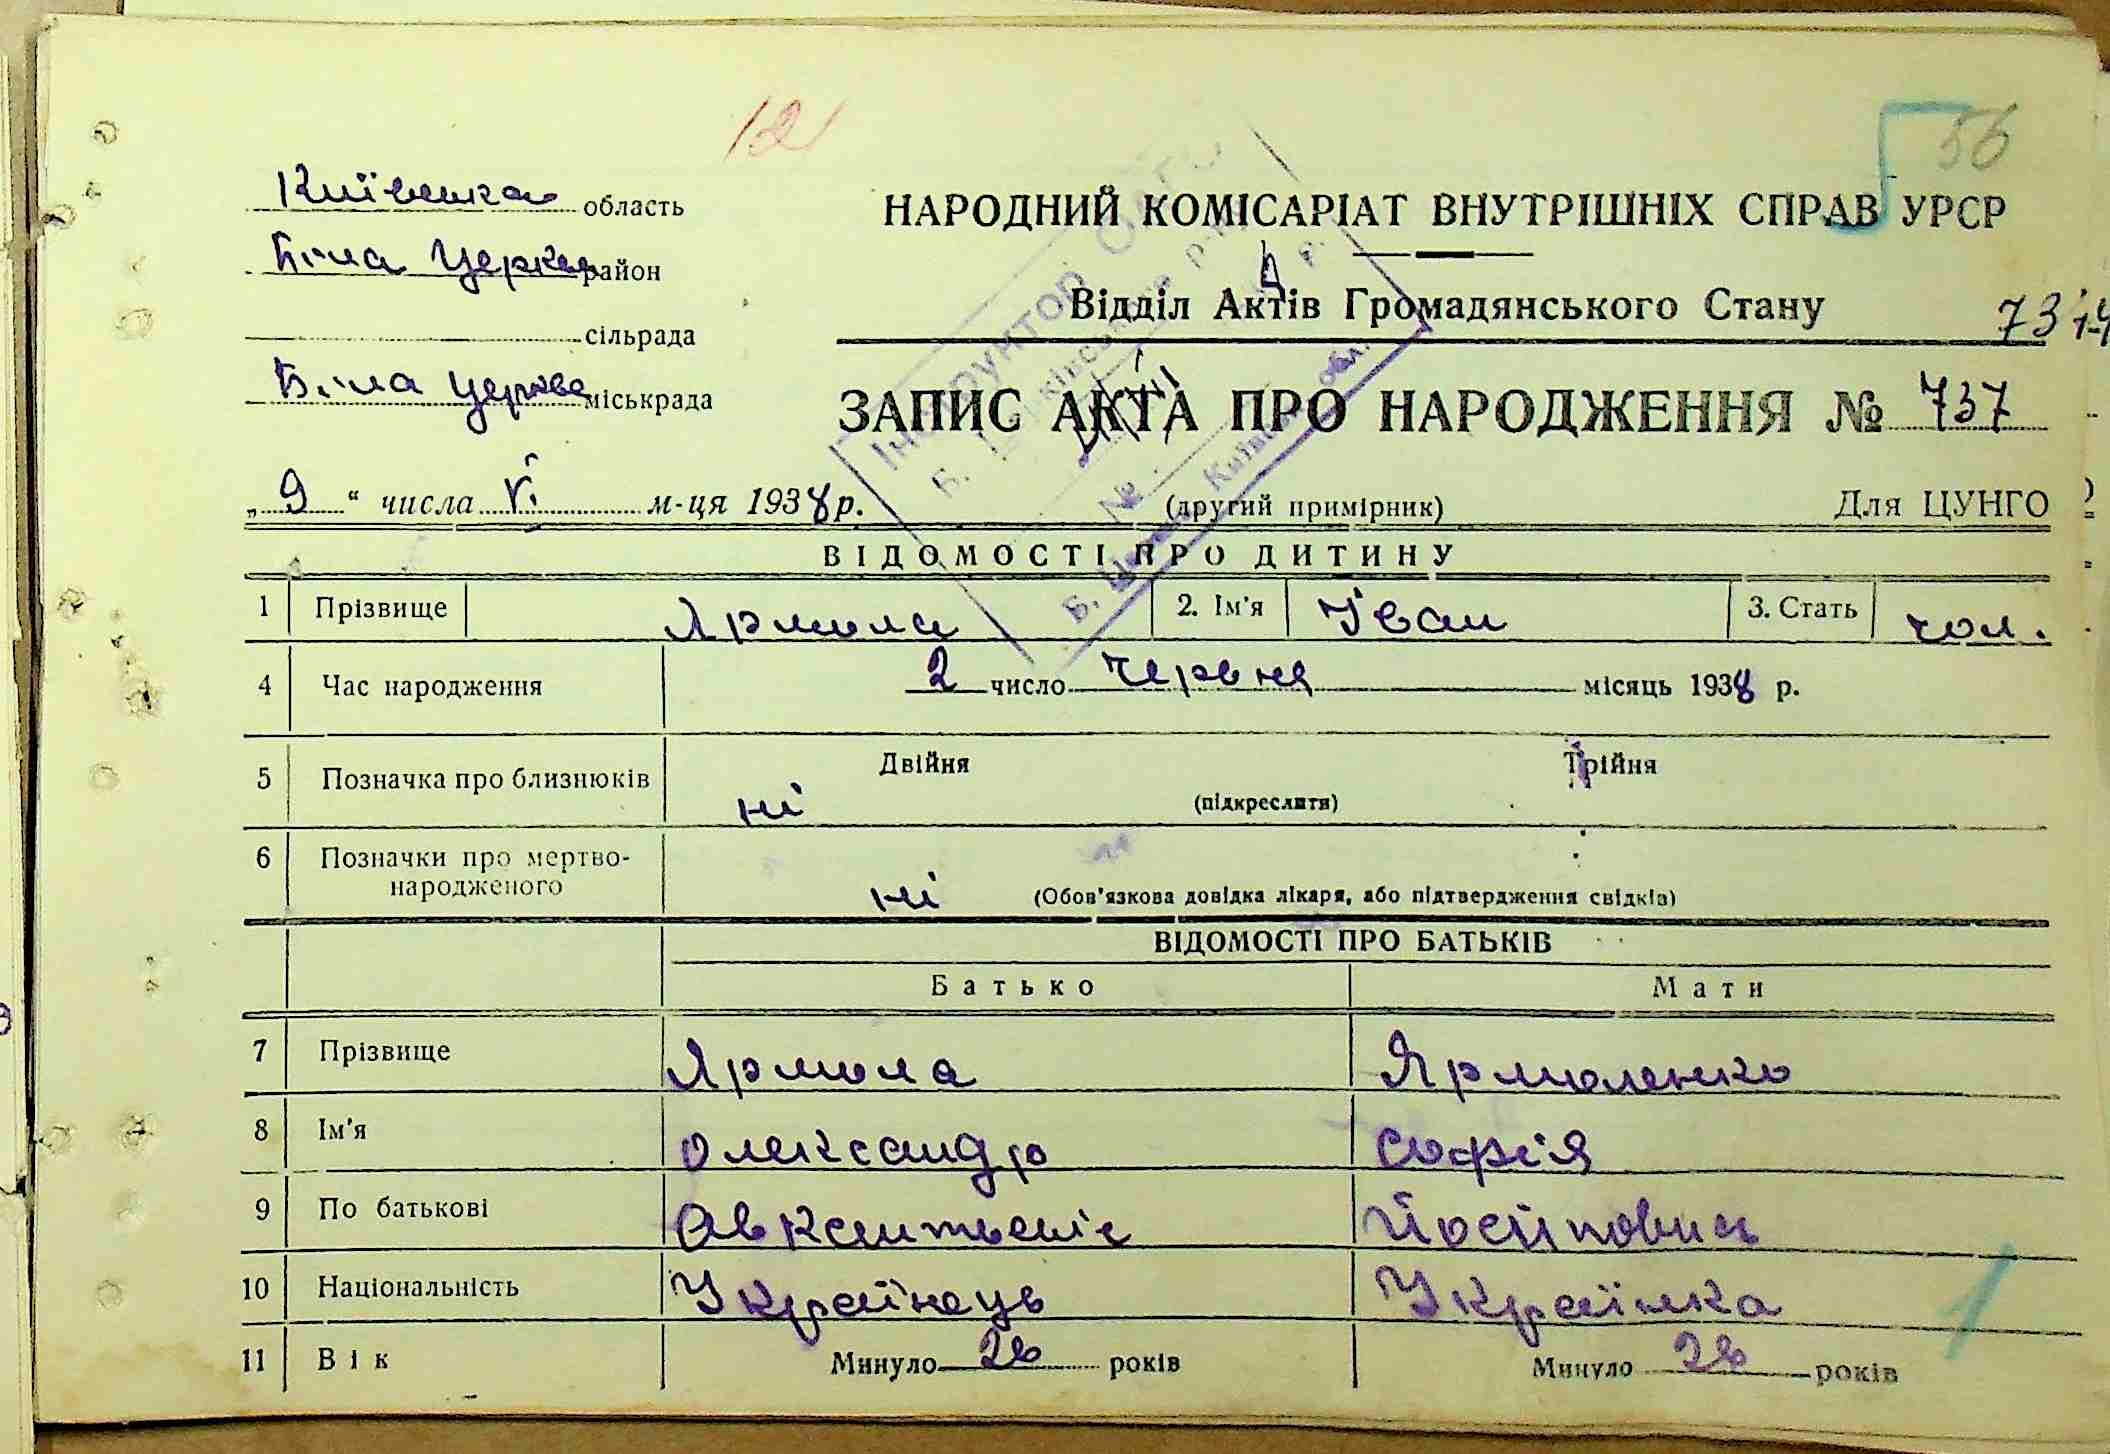 12
56
Київська область
НАРОДНИЙ КОМІСАРІАТ ВНУТРІШНІХ СПРАВ УРСР
Біла Церква район
Відділ Актів Громадянського Стану
сільрада
Біла Церква міськрада
ЗАПИС АКТА ПРО НАРОДЖЕННЯ № 737
„ 9 “ числа VI м-ця 1938 р. (другий примірник) Для ЦУНГО
ВІДОМОСТІ ПРО ДИТИНУ
1 Прізвище Ярмола 2. Ім'я Іван 3. Стать чол.
4 Час народження 2 число червня місяць 1938 р.
5 Позначка про близнюків ні Двійня Трійня
(підкреслити)
6 Позначки про мертво-
народженого ні (Обов'язкова довідка лікаря, або підтвердження свідків)
ВІДОМОСТІ ПРО БАТЬКІВ
Батько Мати
7 Прізвище Ярмола Ярмоленко
8 Ім'я Олександр Софія
9 По батькові Йосиповна
10 Національність Українець Українка
11 Вік Минуло років Минуло років
1
Інструктор
Б. Церква Київської обл.